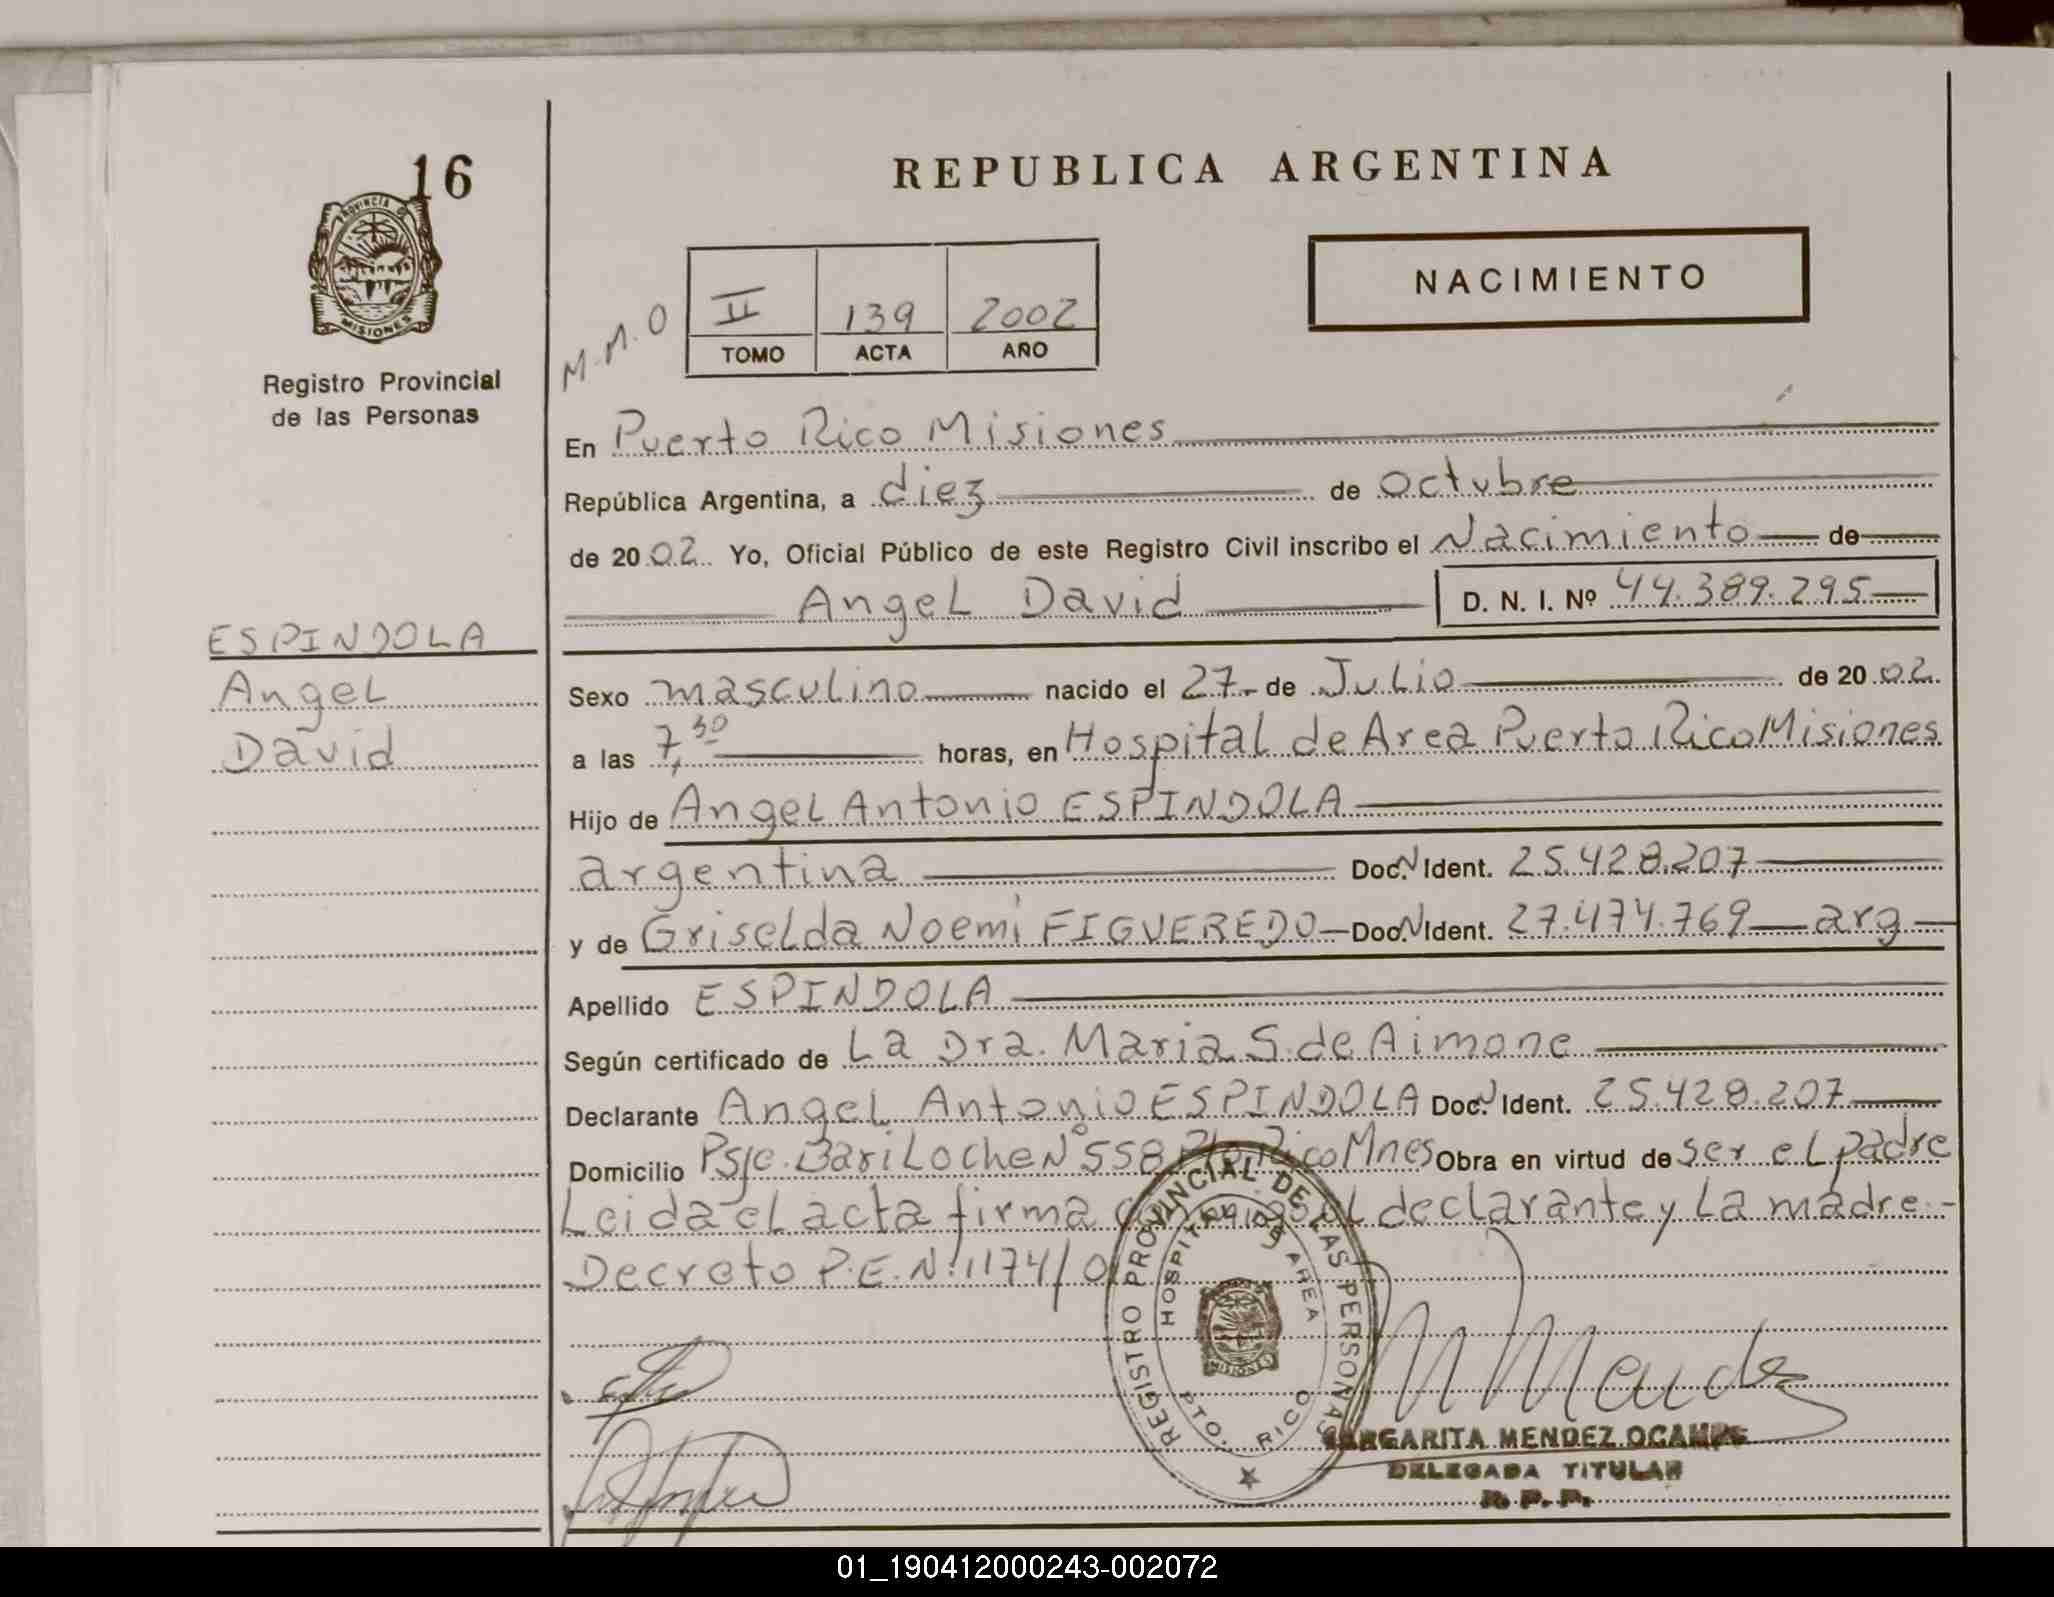 16
PROVINCIA DE
MISIONES
Registro Provincial
de las Personas
ESPINDOLA
Angel
David
REPUBLICA ARGENTINA
NACIMIENTO
M.M.O
II 139 2002
TOMO ACTA AÑO
En Puerto Rico Misiones
República Argentina, a diez de octubre
de 2002. Yo, Oficial Público de este Registro Civil inscribo el Nacimiento de
Angel David D. N. I. Nº 44.389.295
Sexo masculino nacido el 27 de Julio de 2002.
a las 7,30 horas, en Hospital de Area Puerto Rico Misiones
Hijo de Angel Antonio ESPINDOLA
argentina Doc. N Ident. 25.428.207
y de Griselda Noemi FIGUEREDO Doc. N Ident. 27.474.769 arg
Apellido ESPINDOLA
Según certificado de La Dra. Maria S. de Aimone
Declarante Angel Antonio ESPINDOLA Doc. N Ident. 25.428.207
Domicilio Psje. Bariloche Nº 558 Pto. Rico Mnes Obra en virtud de ser el padre
Leida el acta firma el declarante y La madre.-
Decreto P.E.N. 1174/0
REGISTRO PROVINCIAL DE LAS PERSONAS
HOSPITAL DE AREA
MISIONES
PTO. RICO
M Mendez
MARGARITA MENDEZ OCAMPO
DELEGADA TITULAR
R. P. P.
01_190412000243-002072